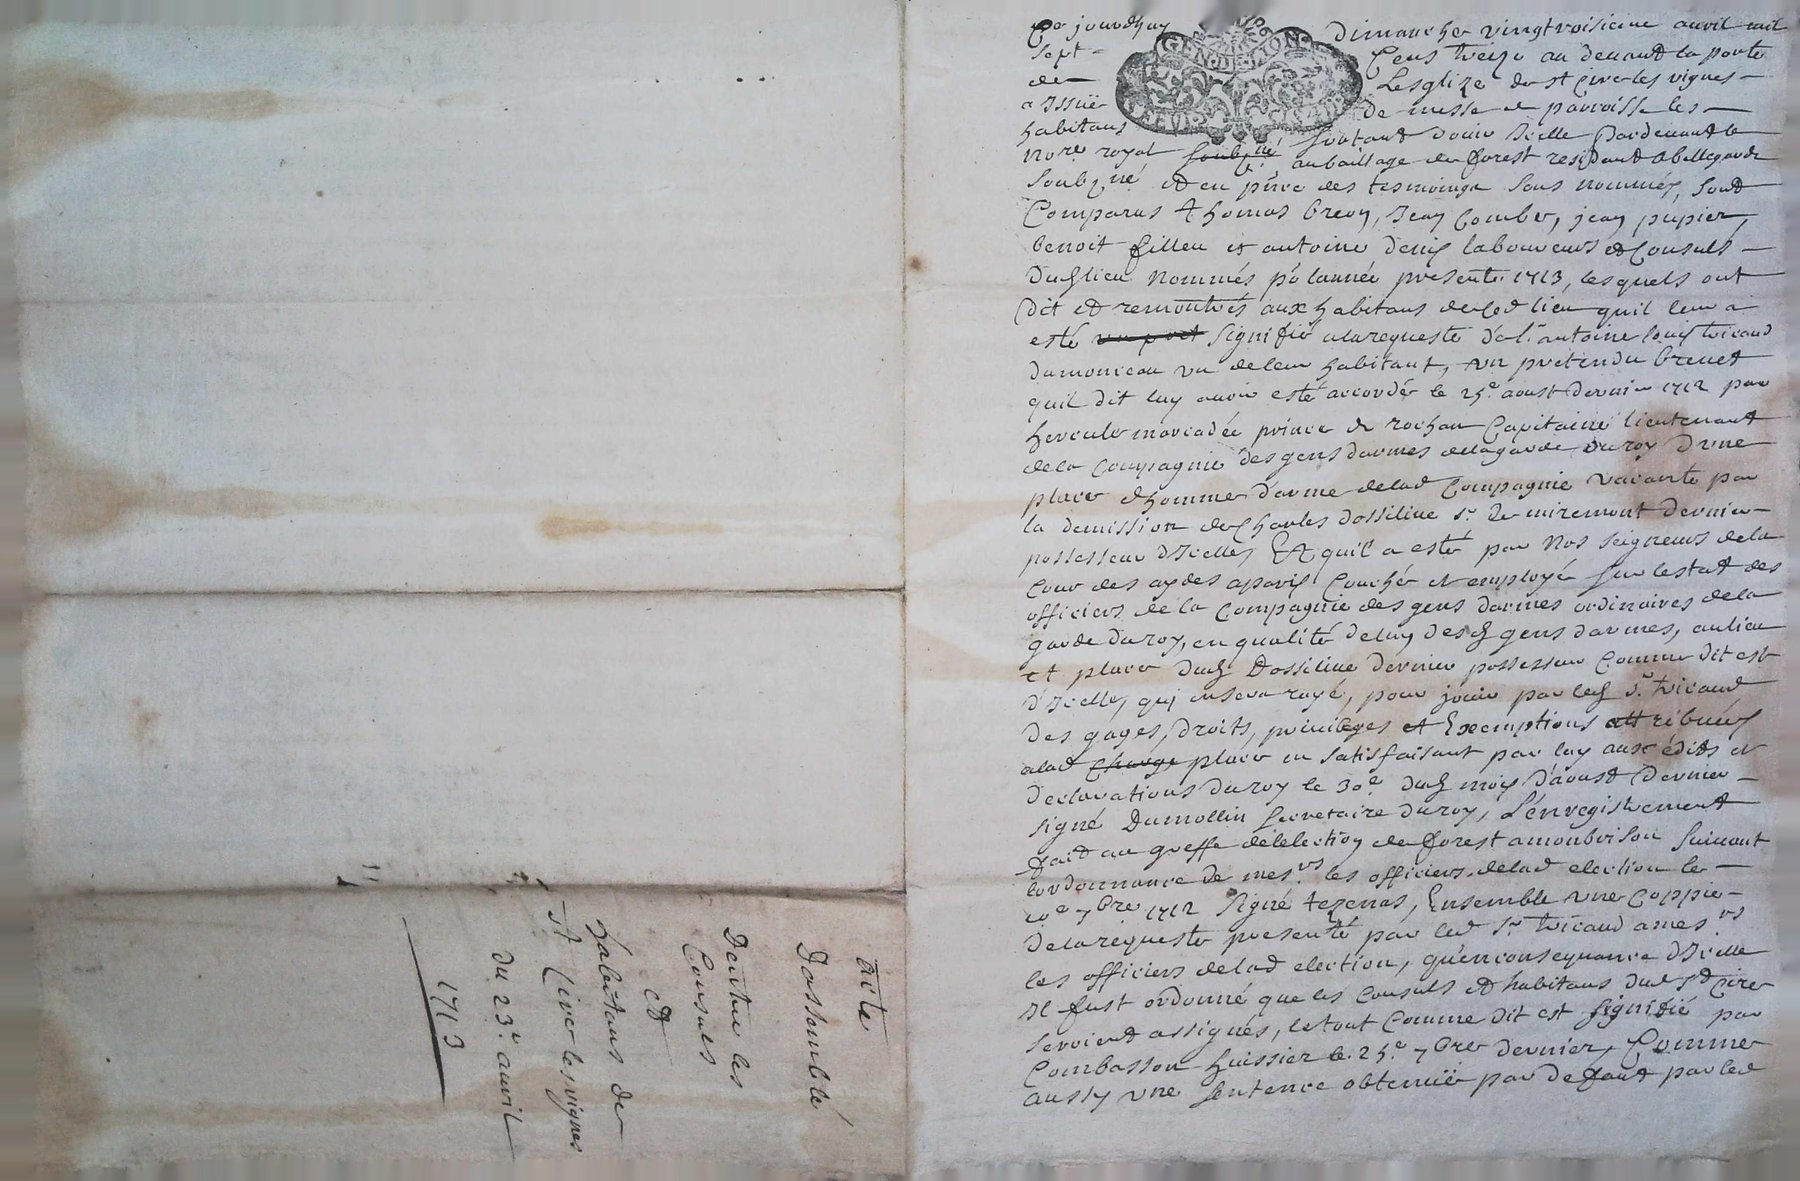 acte
Dassemblé
Dentre les
Consuls
et
habitans de
St Circ les vignes
du 23e avril
1713
Ce jourdhuy Dimanche vingtroisieme avril mil
sept Cens treize au devant la porte
de Lesglize de st Circ les vignes
a Issüe de messe de parroisse les
habitans sortant douir Icelle Pardevant le
nore royal soubzné au bailliage de forest residant a bellegarde
soubzné et en pñce des tesmoings sous nommés, sont
Comparus Thomas breuy, Jean Combe, jean pupier,
benoit filleu et antoine denis laboureurs et Consuls
dud lieu nommés pr lannée presente 1713, lesquels ont
dit et remontrés aux habitans dud lieu quil leur a
esté signifié a la requeste de sr antoine louis tricaud
dumonceau un de leur habitant, un pretendu brevet
quil dit luy avoir esté accordée le 25e aoust dernier 1712 par
hercule meriadée prince de rohan Capitaine lieutenant
de la Compagnie des gens darmes de la garde du roy Dune
place dhomme darme de lad Compagnie vacante par
la demission de Charles dossiline sr de miremont dernier
possesseur dIcelle, Et quil a esté par nos seigneurs de la
cour des aydes a paris Couché et employé sur lestat des
officiers de la Compagnie des gens darmes ordinaires de la
garde du roy, en qualité de luy desd gens darmes, au lieu
et place dud Dossiline dernier possesseur Comme dit est
d'Icelle, qui en sera rayé, pour jouir par led sr tricaud
des gages, droits, privileges et Exemptions attribuées
a lad charge place en satisfaisant par luy aux édits et
declarations du roy le 30e dud mois daoust dernier
signé Dumollin secretaire du roy, L'enregistrement
fait au greffe de lelection de forest a monbrison suivant
lordonnance de mesrs les officiers de lad election le
10e 7bre 1712 signé tezenas, Ensemble une Coppie
de la requeste presenté par led sr tricaud a mesrs
les officiers de lad election, qu'en consequance dIcelle
Il fust ordonné que les Consuls et habitans dud st Circ
seroient assignés, le tout Comme dit est signifié par
Combasson huissier le 25e 7bre dernier, Comme
aussy une sentence obtenüe par defaut par led